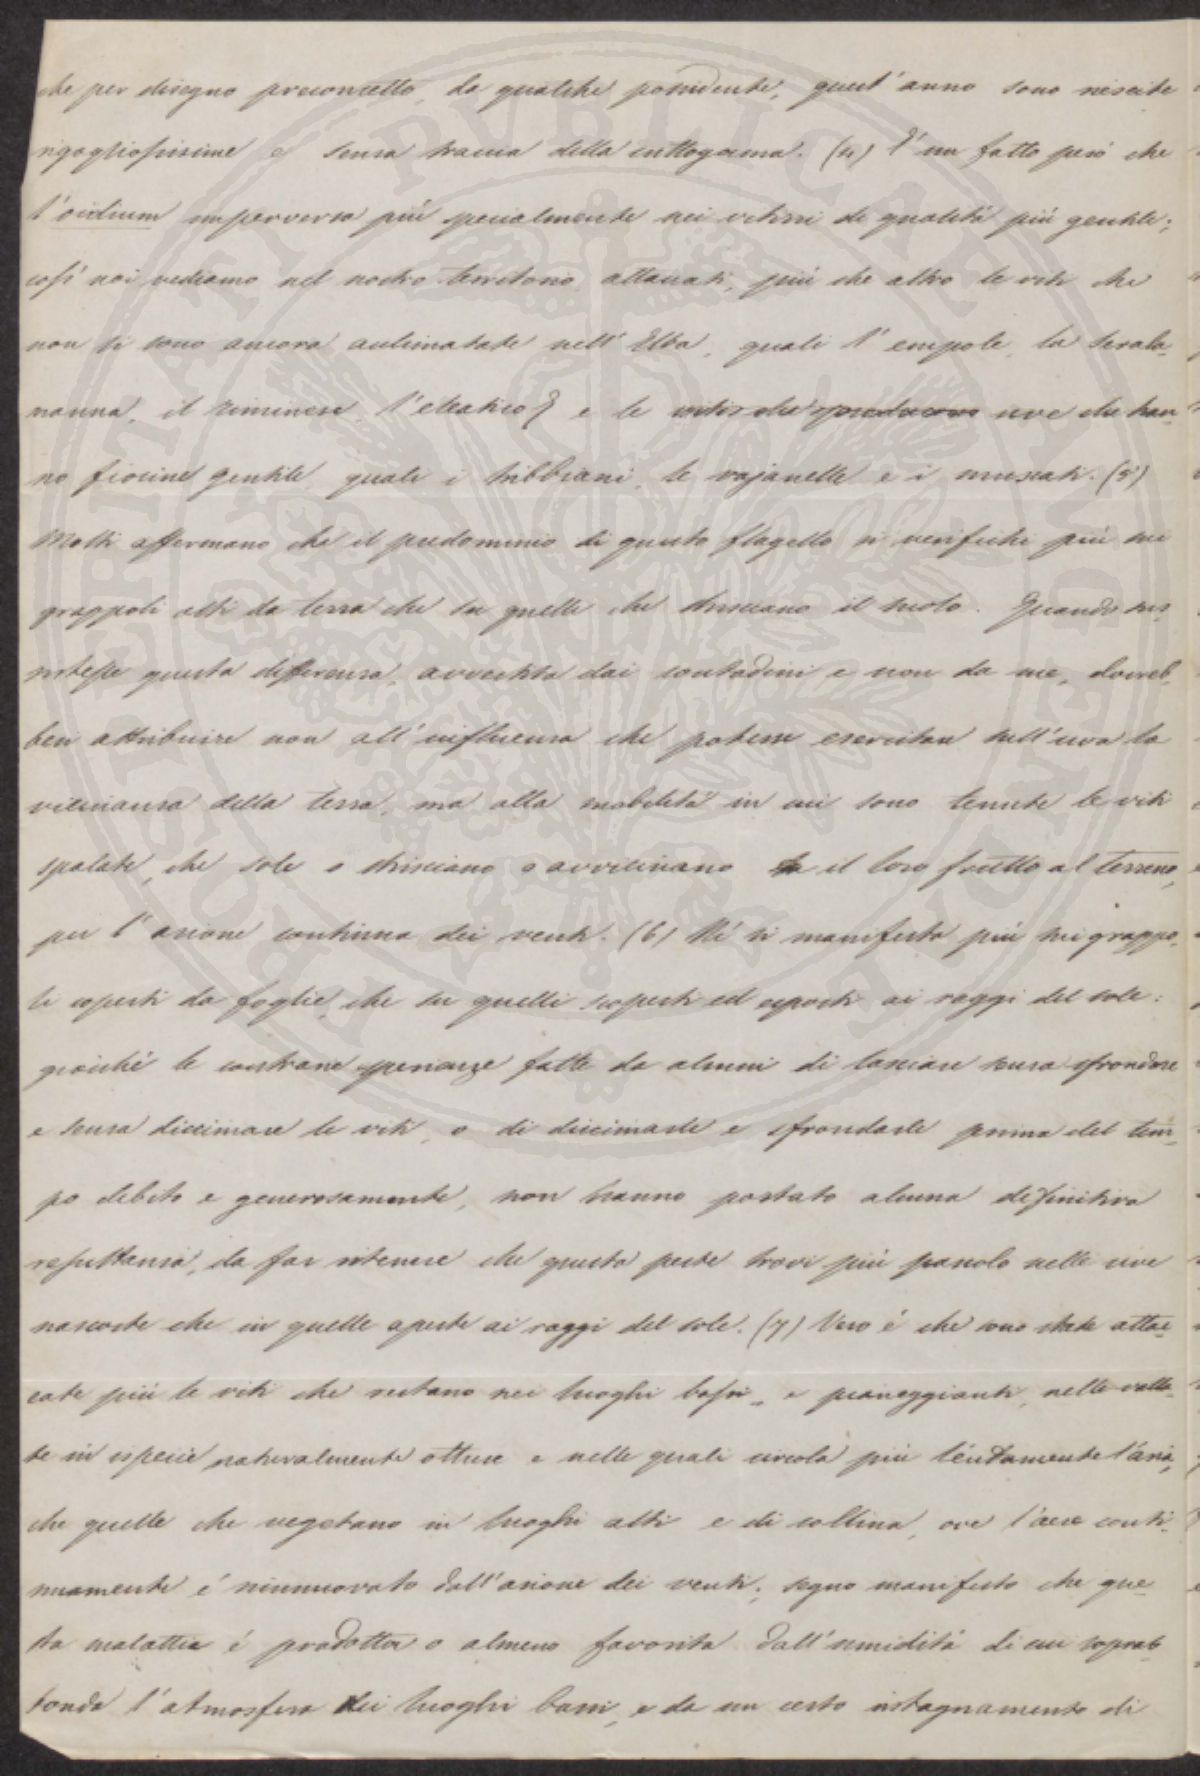 che per disegno preconcetto, da qualche possidente, quest'anno sono riescite
rigogliosissime e senza traccia della crittogama. (4) È un fatto però che
l'oidium imperversa più specialmente nei vitizzi di qualità più gentile;
così noi vediamo nel nostro territorio attaccati, più che altro le viti che
non si sono ancora aclimatate nell'Elba, quali l'empole, la seralo-
manna, il riminese, l'eleatico, e le uve che han-
no fiocine gentile quali i tribbiani, le vajanelle e i muscati. (5)
Molti affermano che il predominio di questo flagello si verifichi più nei
grappoli alti da terra che su quelli che strisciano il suolo. Quando sus-
sistesse questa differenza, avvertita dai contadini e non da me, dovreb-
besi attribuire non all'influenza che potesse esercitare sull'uva la
vicinanza della terra, ma alla mobilità in cui sono tenute le viti
spalate, che sole o strisciano o avvicinano il loro frutto al terreno,
per l'azione continua dei venti. (6) Nè si manifesta più sui grappo-
li coperti da foglie, che su quelli scoperti ed esposti ai raggi del sole:
giacchè le contrarie sperienze fatte da alcuni di lasciare senza sfrondare
e senza diccimare le viti, o di diccimarle e sfrondarle prima del tem-
po debito e generosamente, non hanno portato alcuna definitiva
resultanza, da far ritenere che questa peste trovi più pascolo nelle uve
nascoste che in quelle aperte ai raggi del sole. (7) Vero è che sono state attac-
cate più le viti che restano nei luoghi bassi, e pianeggianti, nelle valla-
te in ispecie naturalmente ottuse e nelle quali circola più lentamente l'aria,
che quelle che vegetano in luoghi alti e di collina, ove l'aere conti-
nuamente è rinnuovato dall'azione dei venti; segno manifesto che que-
sta malattia è prodotta o almeno favorita dall'umidità di cui soprab-
bonda l'atmosfera dei luoghi bassi, e da un certo istagnamento di